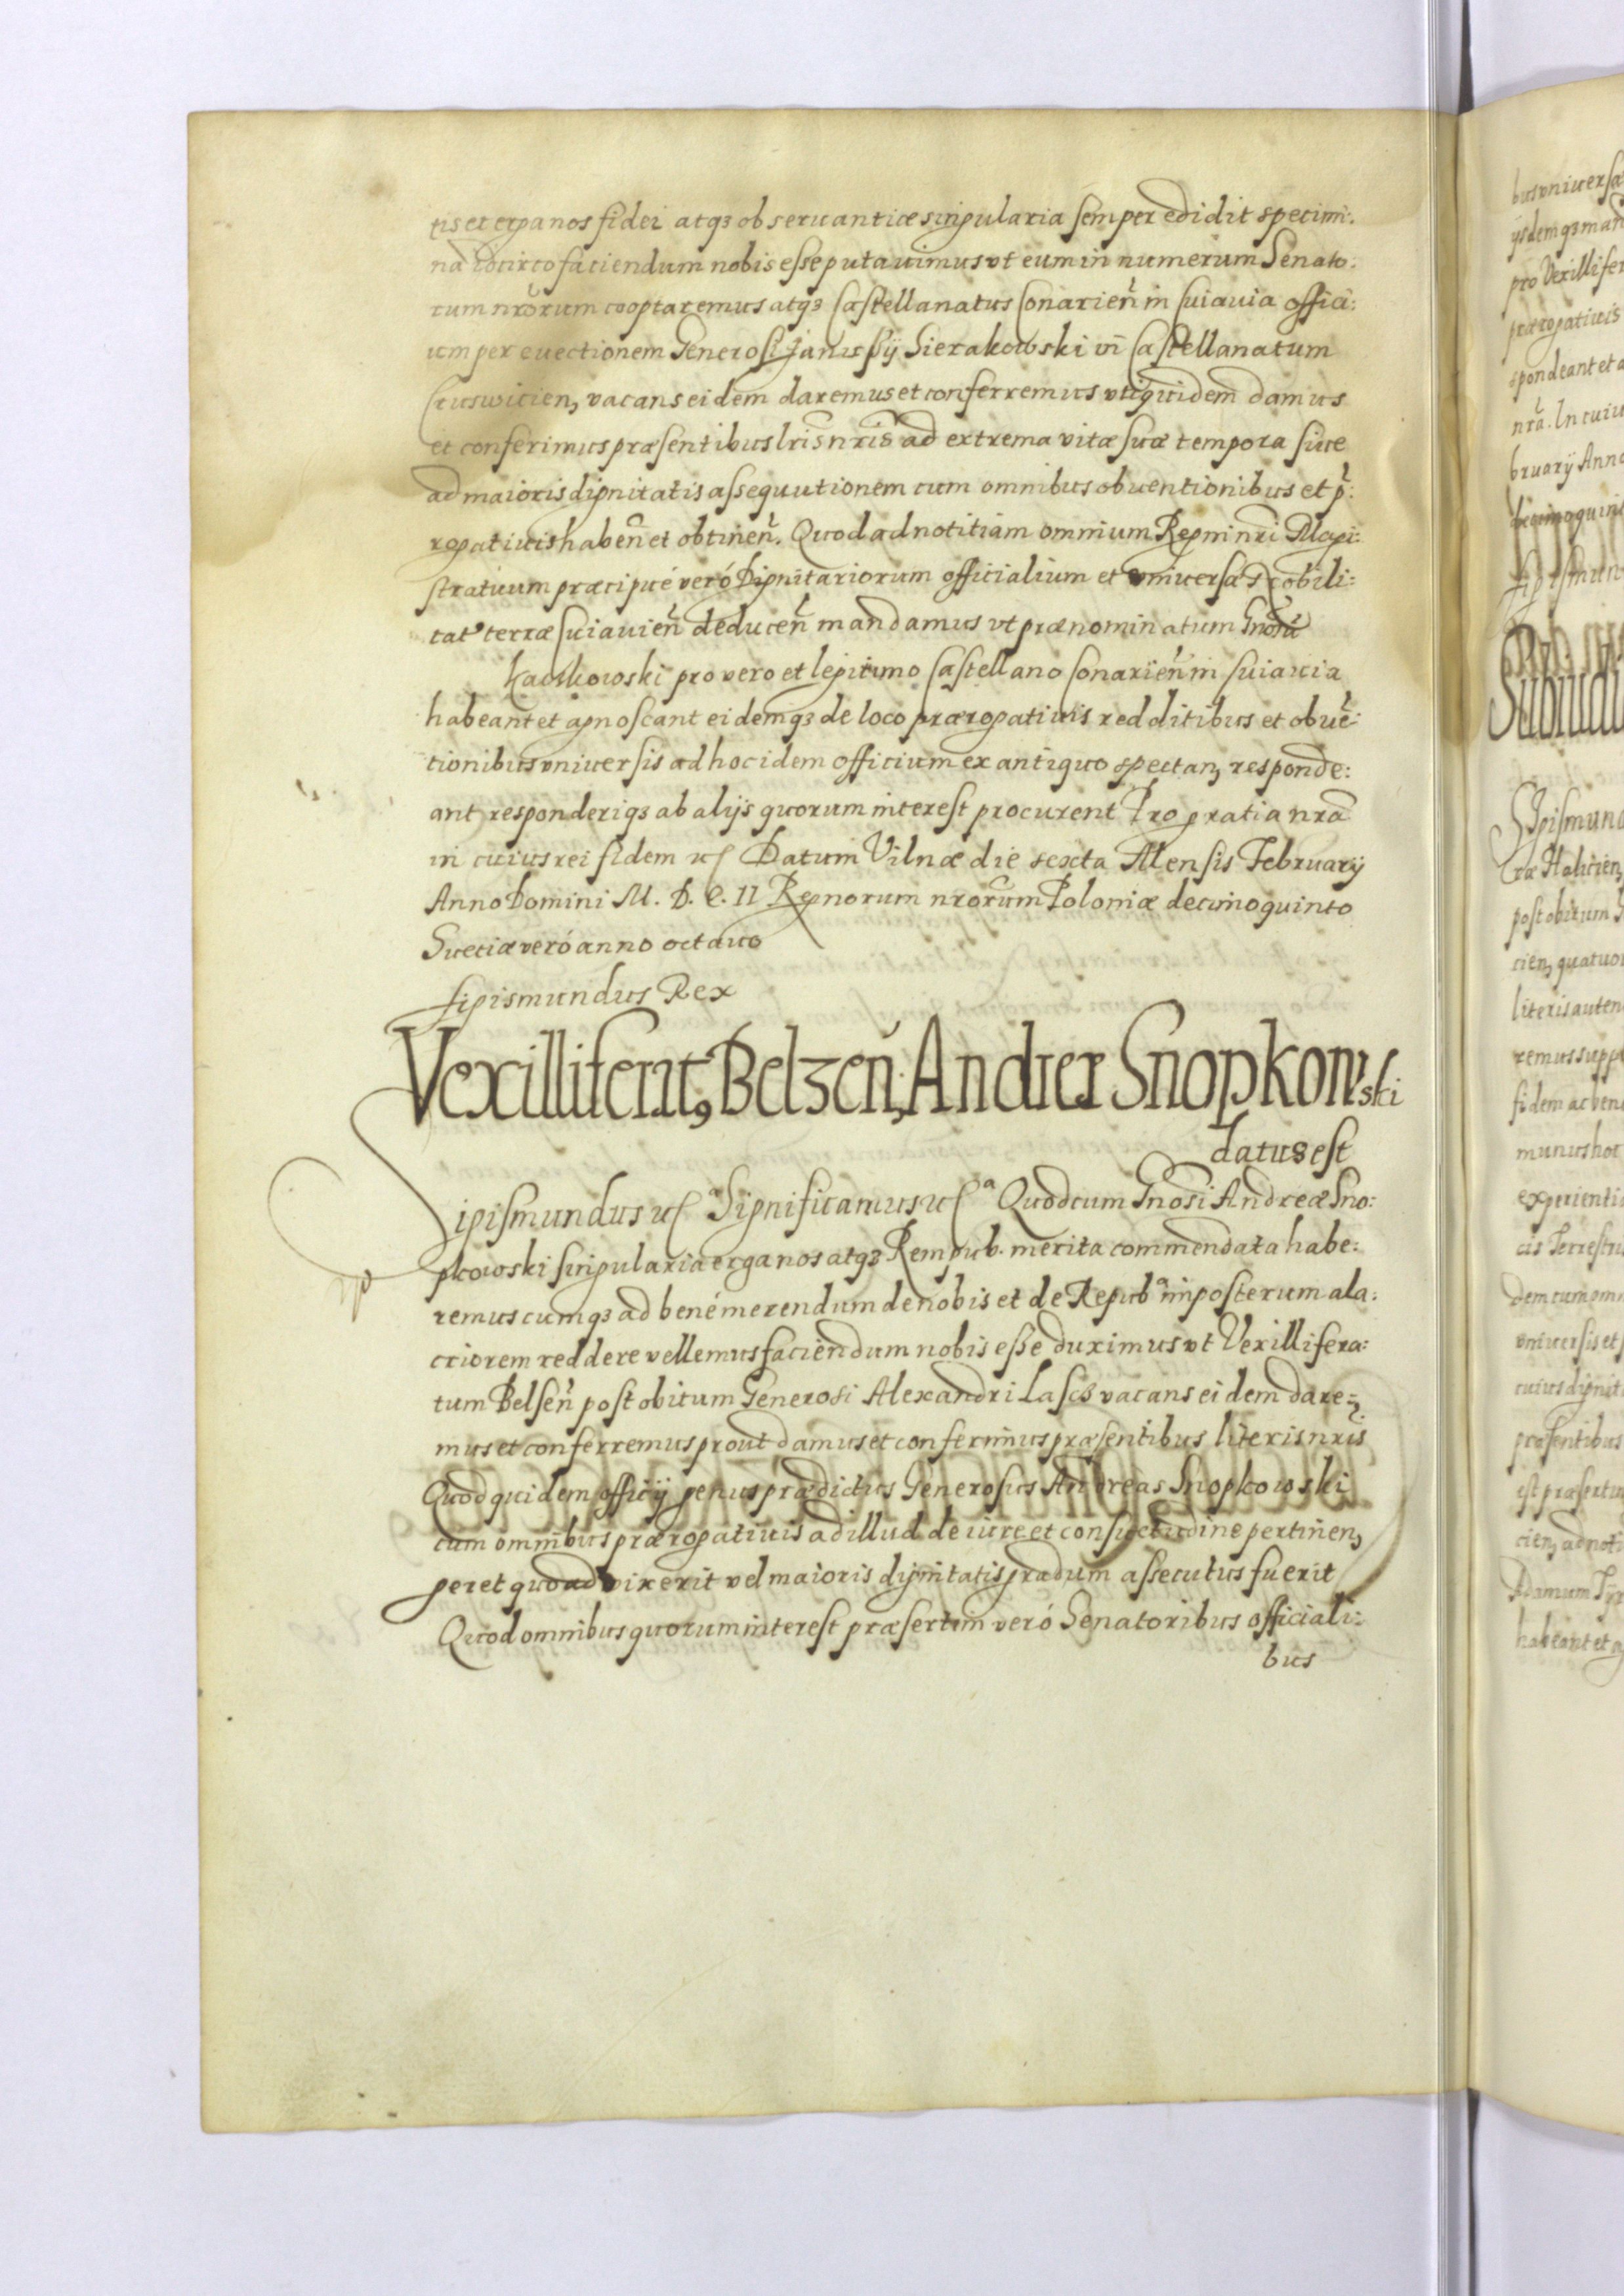 tis et erga nos fidei atqз obseruantiæ singularia semper edidit specimi:
na idcirco faciendum nobis esse putauimus vt eum in numerum Senato:
rum nrorum cooptaremus atqз Castellanatus Conarien̄ in Cuiauia offici:
um per euectionem Generosi Janussij Sierakowski in Castellanatum
Cruswicien, vacans eidem daremus et conferremus vti quidem damus
et conferimus præsentibus lris nris ad extrema vitæ suæ tempora siue
ad maioris dignitatis assequutionem cum omnibus obuentionibus et p̄:
rogatiuis haben̄ et obtinen̄. Quod ad notitiam omnium Regni nri Magi:
stratuum præcipué veró Dignitariorum officialium et vniuersæ Nobili:
tat' terræ Cuiauien̄ deducen̄ mandamus vt prænominatum Gnosū
Kaczkowski pro vero et legitimo Castellano Conarien̄ in Cuiauia
habeant et agnoscant eidemqз de loco prærogatiuis redditibus et obuē:
tionibus vniuersis ad hoc idem officium ex antiquo spectan, responde:
ant responderiqз ab alijs quorum interest procurent Pro gratia nra
in cuius rei fidem etc Datum Vilnæ die sexta Mensis February
Anno Domini M. D. C. II Regnorum nrorum Poloniæ decimoquinto
Sueciæ veró anno octauo
Sigismundus Rex
Vexilliferat, Belzen̄, Andreæ Snopkowski
datus est
Sigismundus etc Significamus etc a Quod cum Gnosi Andreæ Sno:
pkowski singularia erga nos atqз Rempub. merita commendata habe:
remus cumqз ad bené merendum de nobis et de Repuba imposterum ala:
criorem reddere vellemus faciendum nobis esse duximus vt Vexillifera:
tum Belsen̄ post obitum Generosi Alexandri Lascz vacans eidem dare:
mus et conferremus prout damus et conferimus præsentibus literis nris
Quod quidem officij genus prædictus Generosus Andreas Snopkowski
cum omnibus prærogatiuis ad illud de iure et consuetudine pertinen,
geret quoad vixerit vel maioris dignitatis gradum assecutus fuerit
Quod omnibus quorum interest præsertim veró Senatoribus officiali:
bus
bus vniuersæ
ijsdemqз man
pro Vexillifer
prærogatiuis
spondeant et a
nrā. In cuiu
bruarij Anno
decimoquint
Sigismun
Subiudi
Sigismund
ræ Halicien,
post obitum
cien, quatuor
literis auten
remus supp
fidem ac ben
munus hoc
experientia
cis Terrestri
dem cum omn
vniuersis et
cuius dignit
præsentibus
est præsertim
cien, ad noti
Adamum
habeant et ag